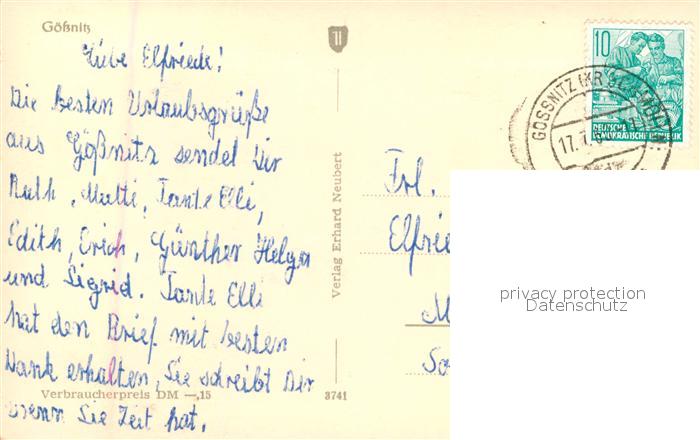 Gößnitz
Liebe Elfriede!
Die besten Urlaubsgrüße
aus Gößnitz sendet Dir
Ruth, Mutti, Tante Elli,
Edith, Erich, Günther Helga
und Sigrid. Tante Elli
hat den Brief mit besten
Dank erhalten, Sie schreibt Dir
wenn Sie Zeit hat.
Verbraucherpreis DM —,15
3741
Verlag Erhard Neubert
10
DEUTSCHE
DEMOKRATISCHE REPUBLIK
GOSSNITZ (KR
17.7.
Frl.
Elfrie
M
So
privacy protection
Datenschutz